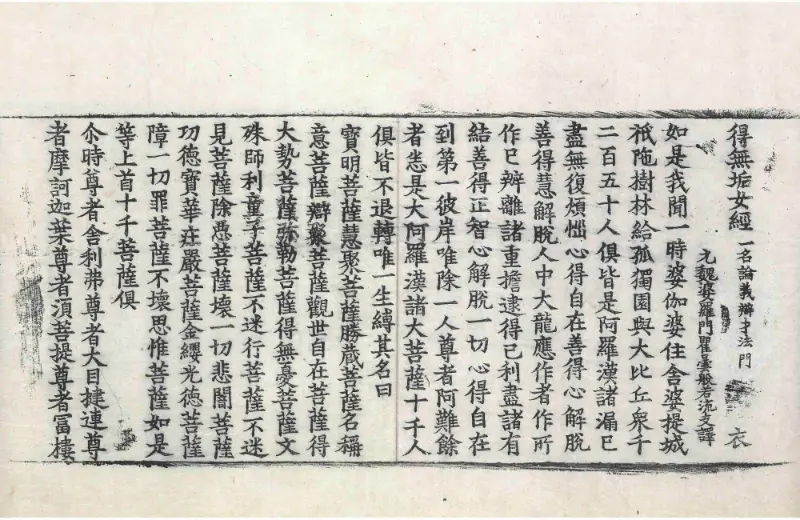 得無垢女經一名論義辯才法門 衣
元魏婆羅門瞿曇般若流支譯
如是我聞一時婆伽婆住舍婆提城
祇陁樹林給孤獨園與大比丘衆千
二百五十人俱皆是阿羅漢諸漏已
盡無復煩惱心得自在善得心解脫
善得慧解脫人中大龍應作者作所
作已辦離諸重擔逮得己利盡諸有
結善得正智心解脫一切心得自在
到第一彼岸唯除一人尊者阿難餘
者悉是大阿羅漢諸大菩薩十千人
俱皆不退轉唯一生縛其名曰
寶明菩薩慧聚菩薩勝藏菩薩名稱
意菩薩辯聚菩薩觀世自在菩薩得
大勢菩薩弥勒菩薩得無憂菩薩文
殊師利童子菩薩不迷行菩薩不迷
見菩薩除悪菩薩壞一切悲闇菩薩
功德寶華莊嚴菩薩金纓光德菩薩
障一切罪菩薩不壞思惟菩薩如是
等上首十千菩薩俱
尒時尊者舍利弗尊者大目揵連尊
者摩訶迦葉尊者湏菩提尊者冨樓